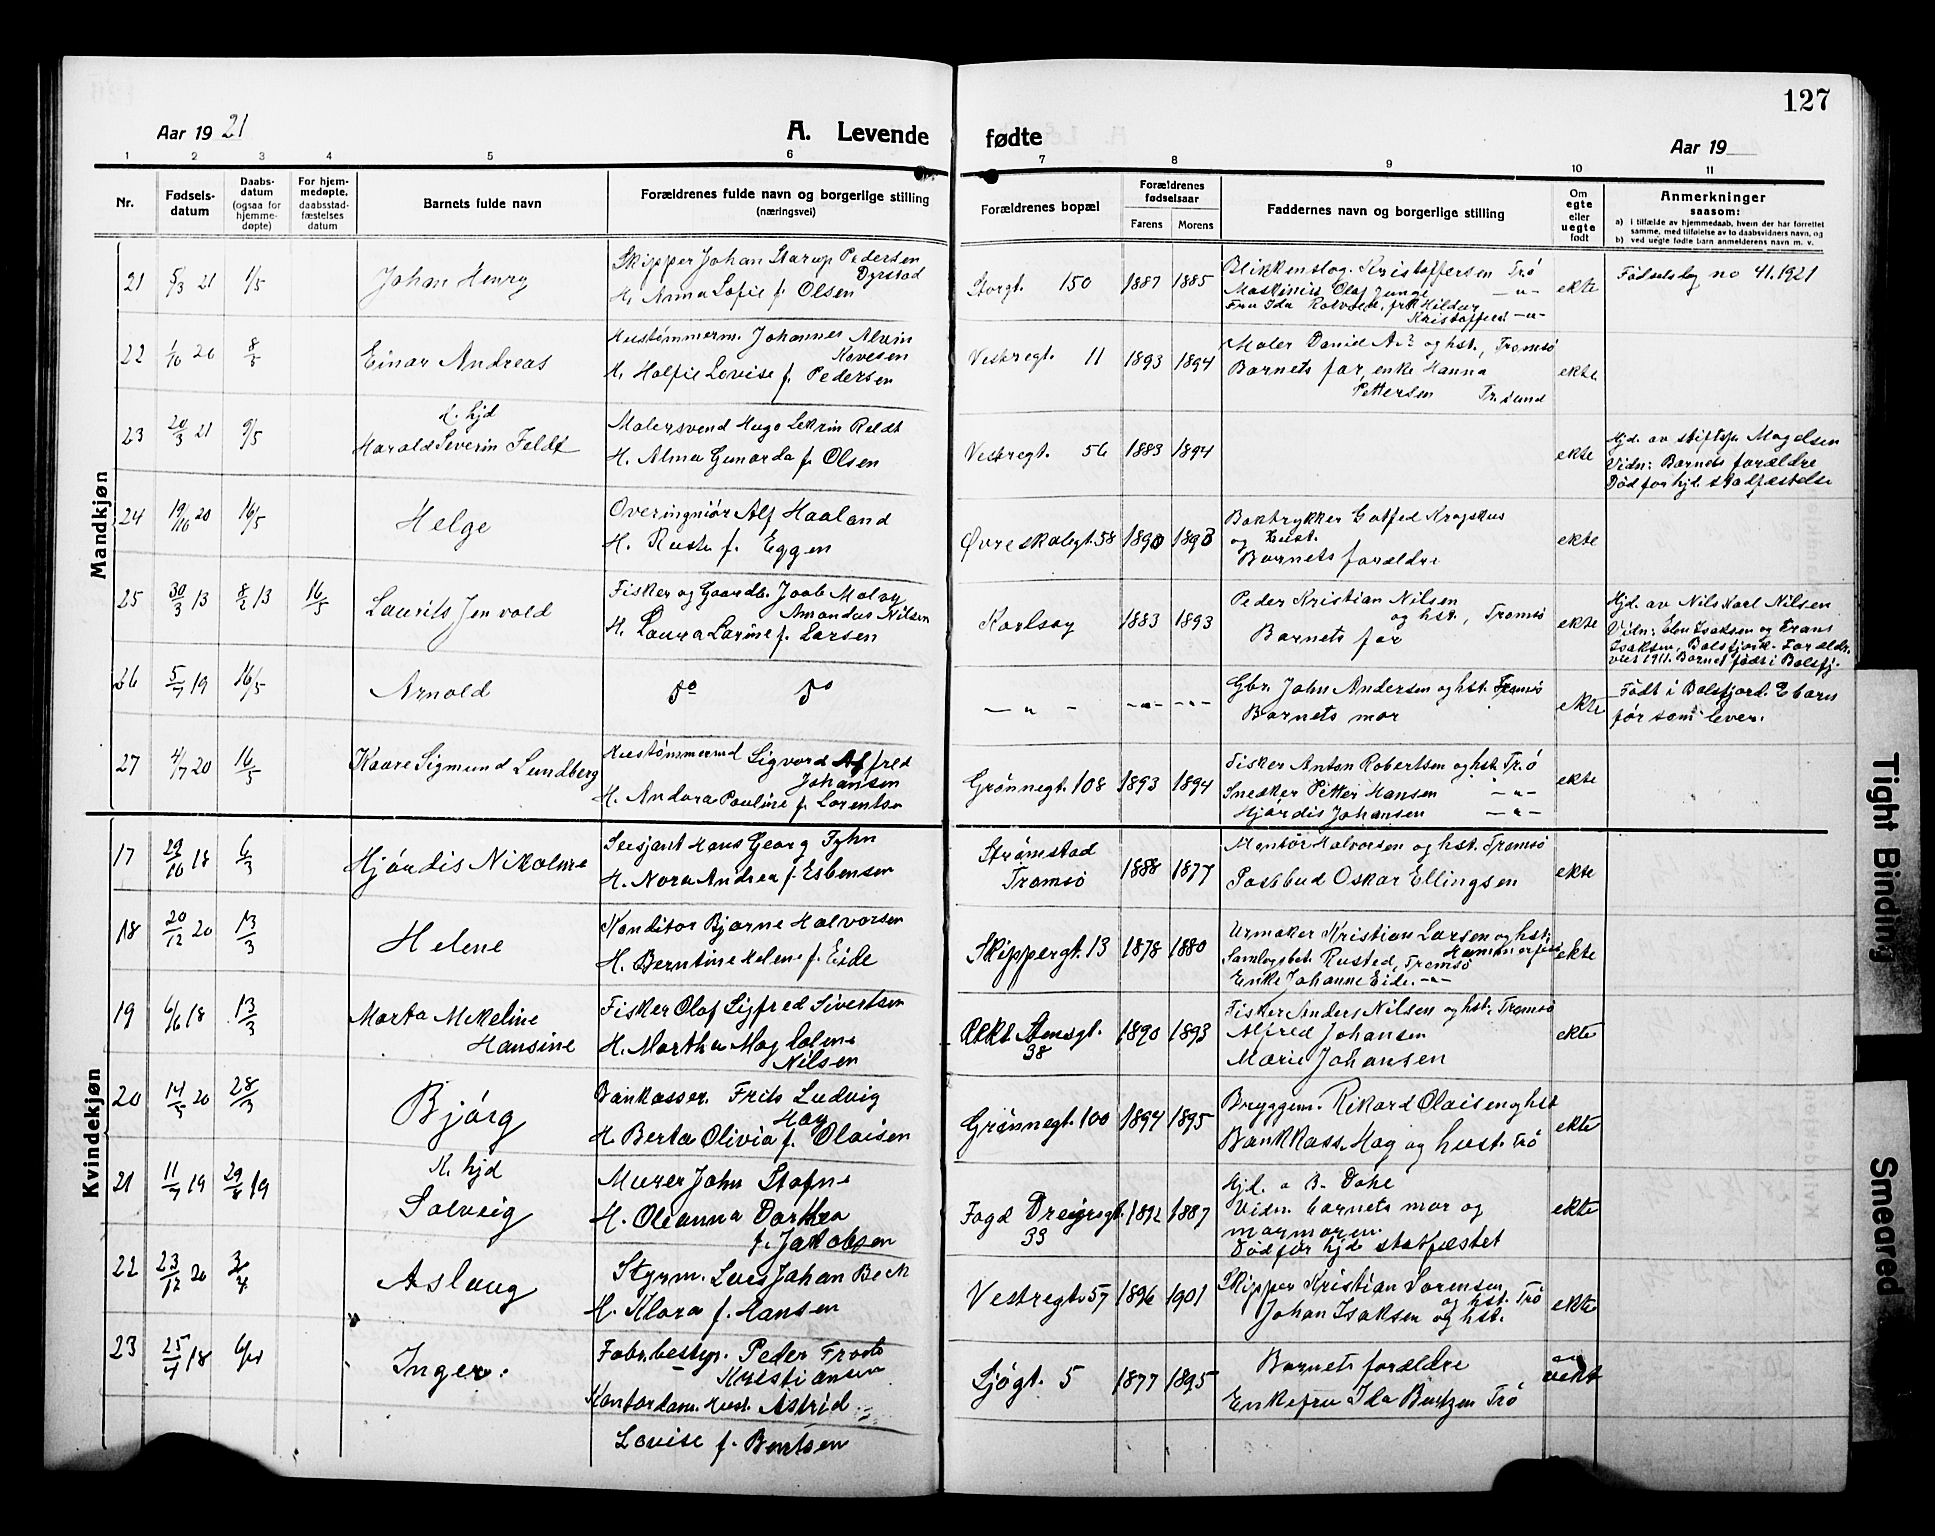 127
Aar 19 21
A. Levende fødte
Aar 19
1 2 3 4 5 6 7 8 9 10 11
Nr.
Fødsels-
datum
Daabs-
datum
(ogsaa for
hjemme-
døpte)
For hjem-
medøpte,
daabsstad-
fæstelses
datum
Barnets fulde navn
Forældrenes fulde navn og borgerlige stilling
(næringsvei)
Forældrenes bopæl
Forældrenes
fødselsaar
Farens Morens
Faddernes navn og borgerlige stilling
Om
egte
eller
uegte
født
Anmerkninger
saasom:
a) i tilfælde av hjemmedaab, hvem der har forrettet
samme, med tilføielse av to daabsvidners navn, og
b) ved uegte fødte barn anmelderens navn m. v.
Mandkjøn
21 5/3 21 1/5 Johan Henry
Skipper Johan Starup Pedersen
Dyrstad
H. Anna Sofie f. Olsen
Storgt. 150 1887 1885
Blikkenslag. Kristoffersen Trö
Maskinist Olaf
Fru Ida frk Hildur
Kristoffers -"-
ekte
Födselsleg no 41.1921
22 1/10 20 8/5 Einar Andreas
Hustömmerm. Johannes Alvin
H. Lovise f. Pedersen
Vestregt. 11 1893 1894
Maler David og hst., Tromsö
Barnets far, enke Hanna
Pettersen Tr.sund
ekte
23 20/3 21 9/5
hjd
Harald Severin Feldt
Malersvend Hugo Feldt
H. Alma f. Olsen
Vestregt. 56 1883 1894
ekte
Hjd. av stiftsp. Magelsen
Vidn: Barnets forældre
Död för hjd. stadfæstelse
24 19/10 20 16/5 Helge
Overingniör Alf Haaland
H. f. Eggen
Øvre skolegt. 58
Boktrykker
og hust.
Barnets forældre
ekte
25 30/3 13 8/2 13 16/5 Laurits Jenvold
Fisker og Gaardb.
Amandus Nilsen
H. Laura Larine f. Larsen
Karlsøy 1883 1893
Peder Kristian Nilsen
og hst., Tromsö
Barnets far
ekte
Hjd. av Nils Karl Nilsen
Vidn: Isaksen og Frans
Isaksen, Balsfjord. Forældr.
1911. Barnet födt i Balsfj.
26 5/7 19 16/5 Arnold
do do
-"- -"- -"-
Gbr. John Andersen og hst. Tromsö
Barnets mor
ekte
Födt i Balsfjord. 2 barn
för som lever.
27 4/7 20 16/5 Kaare Sigmund Lundberg
Hustömmermd Sigvard Alfred
Johansen
H. Andora Pauline f. Lorentsen
Grönnegt. 108 1893 1894
Fisker Anton Robertsen og hst. Trö
Snedker Petter Hansen -"-
Hjördis Johansen -"-
ekte
Kvindekjøn
17 29/10 18 6/3 Hjördis Nikoline
Sersjant Hans Georg Fyhn
H. Nora Andrea f. Esbensen
Strömstad
Tromsö
1888 1877
Montör Halvorsen og hst. Tromsö
Postbud Oskar Ellingsen
ekte
18 20/12 20 13/3 Helene
Konditor Bjarne Halvorsen
H. Berntine Helene f. Eide
Skippergt. 13 1878 1880
Urmaker Kristian Larsen og hst.
Hammerfest
Samlagsbest. Rusted, Tromsö
Enke Johanne Eide. -"-
ekte
19 6/6 18 13/3 Marta Mekeline
Hansine
Fisker Olaf Sigfred Sivertsen
H. Martha Magdalene
Nilsen
Amtsgt.
38
1890 1893
Fisker Anders Nilsen og hst. Tromsö
Alfred Johansen
Marie Johansen
ekte
20 14/5 20 28/3 Björg
Bankkasser. Frits Ludvig
Hag
H. Berta Olivia f. Olaisen
Grönnegt. 100 1894 1895
Bryggem. Rikard Olaisen og hst
Bankkass. Hag og hust. Trö
ekte
21 11/7 19 29/8 19
hjd
Solveig
Murer John Stafne
H. Oleanna Dorthea
f. Jakobsen
Fogd Dreyersgt.
33
1892 1887
Hjd. a B. Dahl
Vidn. barnets mor og
mormoren.
Död för hjd. statfæstet
ekte
22 23/12 20 3/4 Aslaug
Styrm. Lars Johan Beck
H. Klara f. Hansen
Vestregt. 57 1896 1901
Skipper Kristian Sørensen
og hst. Trö
Johan Isaksen og hst.
ekte
23 25/4 18 Inger
Fabr.bestyr. Peder
Kristiansen
Kontordame Astrid
Lovise f. Berntsen
Sjøgt. 5 1877 1895
Barnets forældre
Enkefru Ida Berntzen Trö
Tight Binding
Smeared